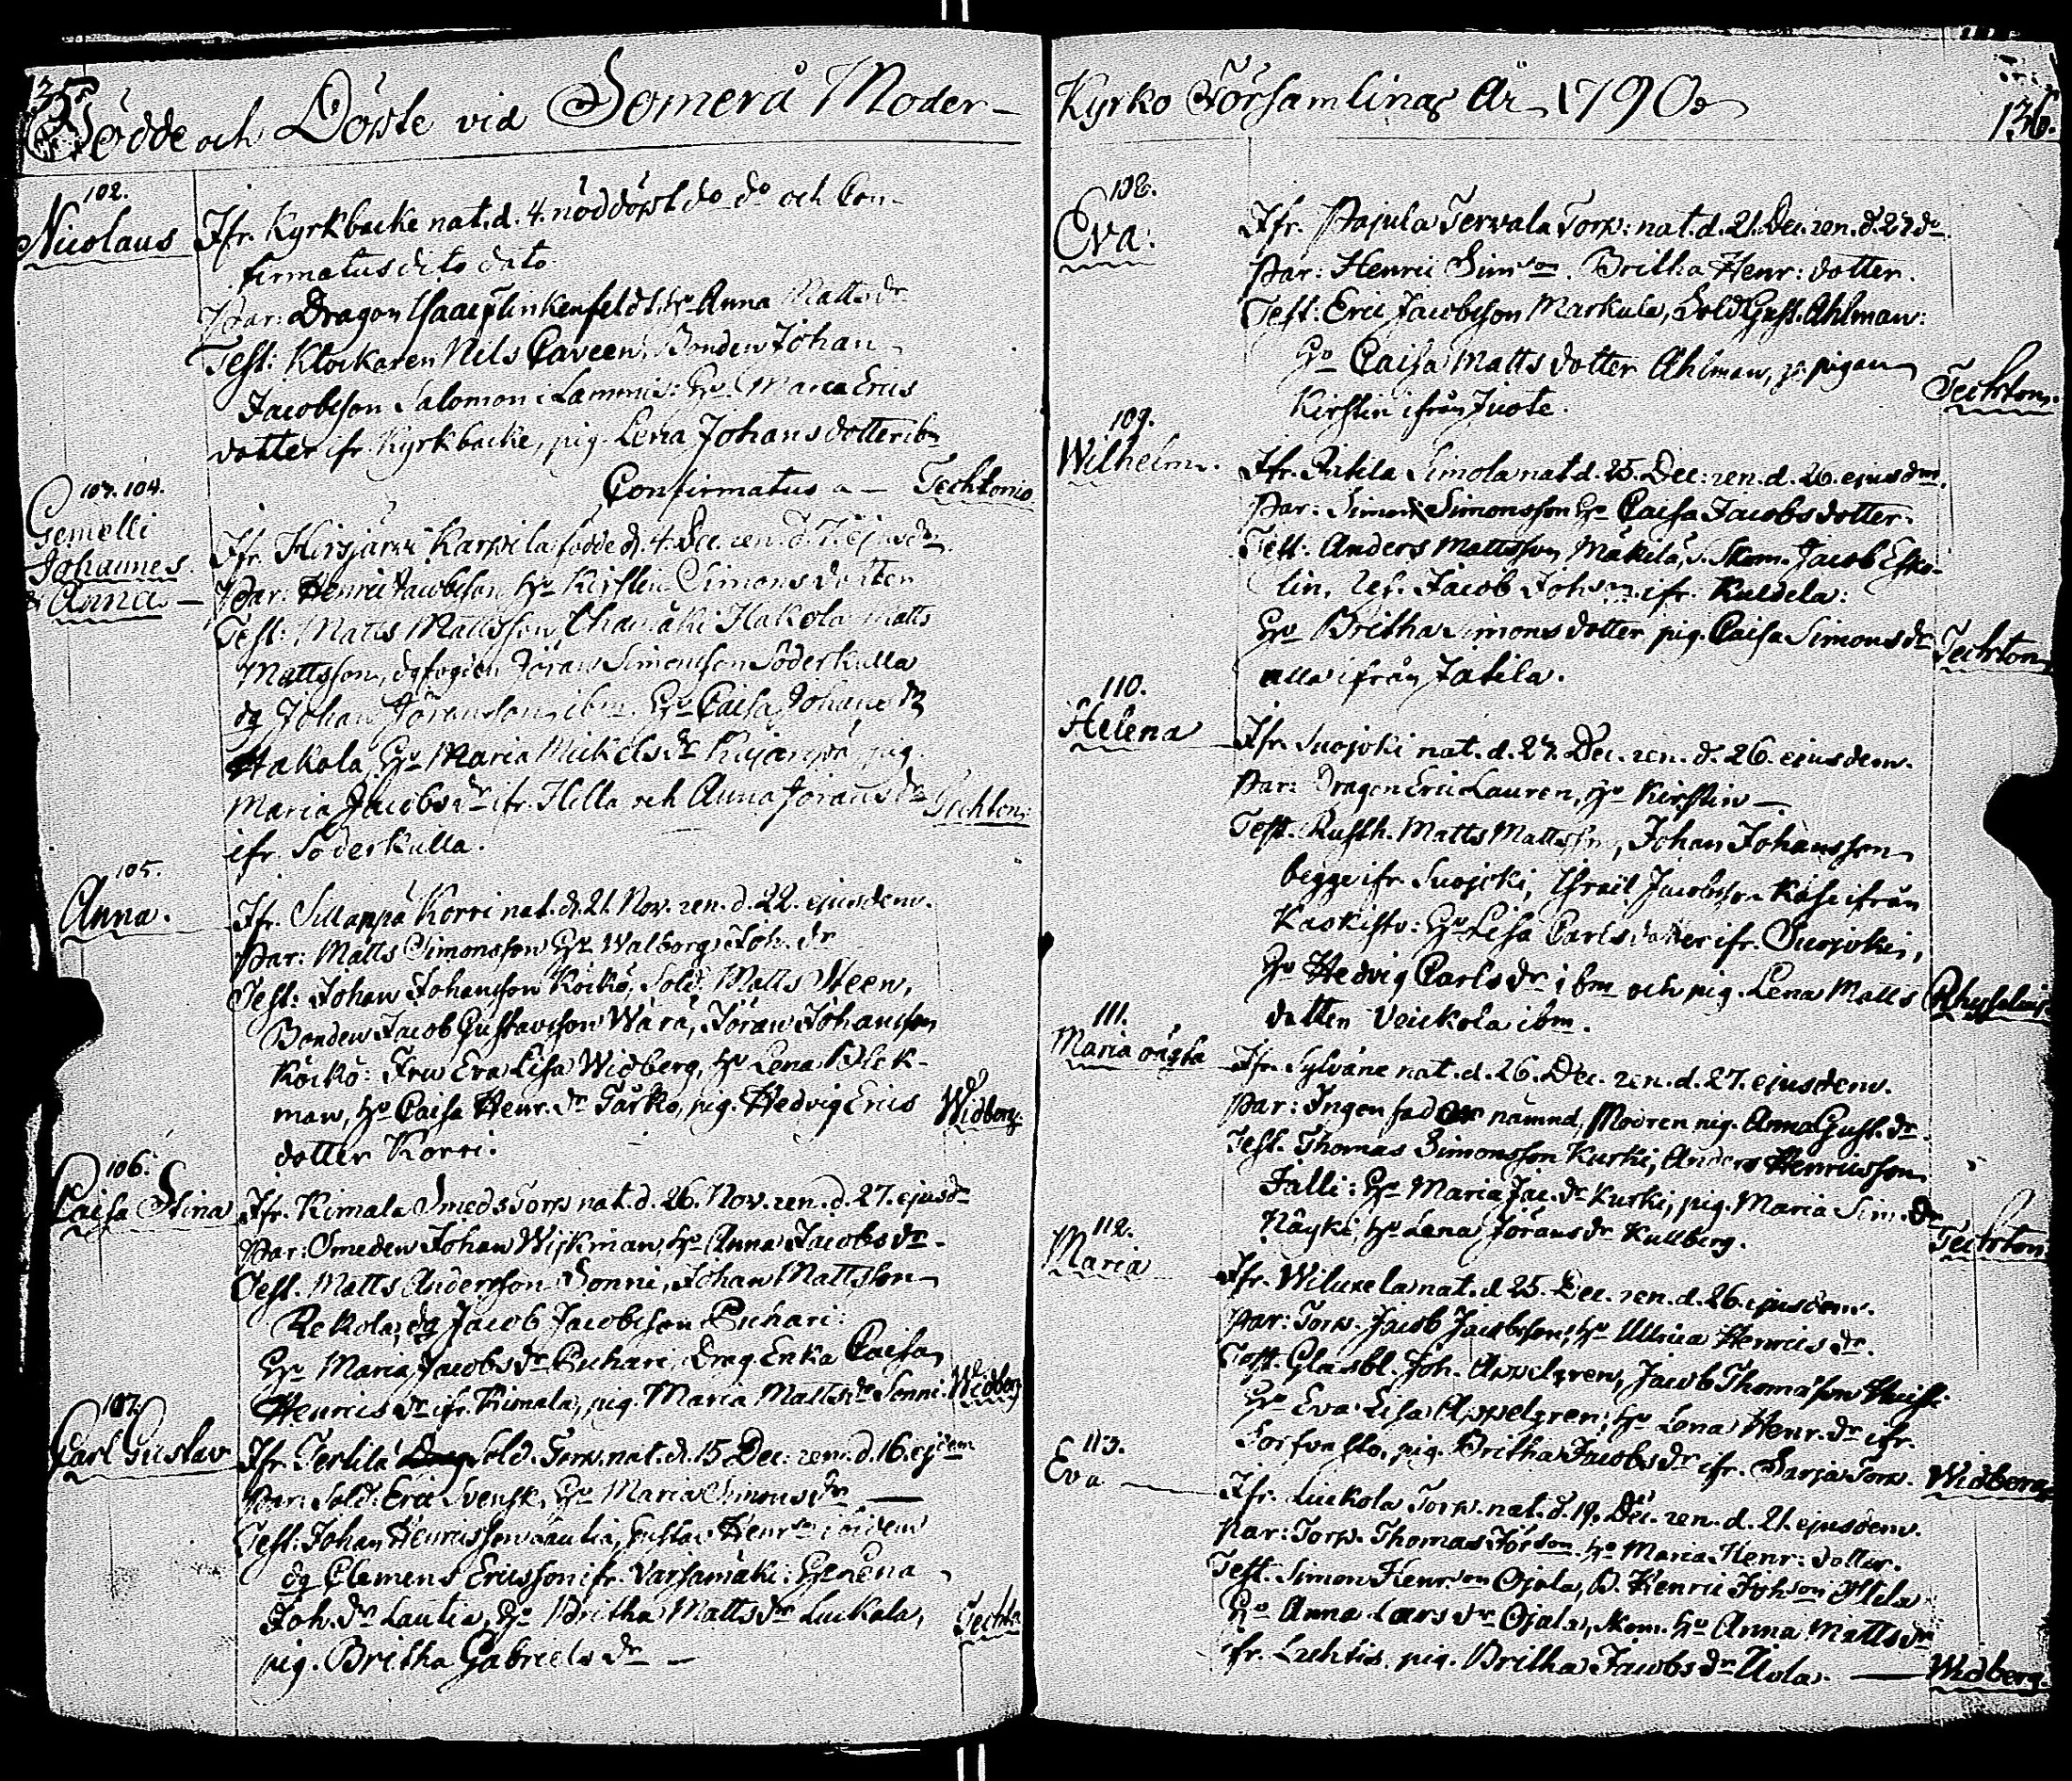 135.
Födde och Döpte vid Somerå Moder-
102.
Nicolaus
Ifr. Kyrkbacke nat. d. 4. nöddöpt do do och Con-
firmatus dito dato.
Par: Dragon Isaac Flinkenfeldt, Ho Anna Matts dr
Test: Klockaren Nils Caveen, Bonden Johan
Jacobsson Salomon i Lammis: Ho Maria Erics
dotter ifr. Kyrkbacke, pig. Lena Johans dotter ibm
Confirmatus a — Techtonio
103. 104.
Gemelli
Johannes.
& Anna —
Ifr. Hirsjärvi Karpila födde d. 4. Dec. ren. d. 7. ejusdm
Par: Henric Jacobsson Ho Kirstin Simons dotter
Test: Matts Mattsson Hakola Matts
Mattsson, Jöran Simonsson Söderkulla
og Johan Jöransson ibm. Ho Caisa Johans dr
Hakola Ho Maria Mickels dr pig.
Maria Jacobs dr ifr. Hella och Anna Jörans dr Techton:
ifr. Söderkulla.
105.
Anna.
Ifr. Sillanpä Korri nat. d. 21. Nov. ren. d. 22. ejusdem.
Par: Matts Simonsson Ho Walborg Joh. dr
Test: Johan Johansson Köikö, Sold. Matts Steen,
Bonden Jacob Gustavsson Wärä, Jöran Johansson
Köikö: Fru Eva Lisa Widberg, Ho Lena Blek-
man, Ho Caisa Henr. dr Tarko, pig. Hedvig Erics Widberg
dotter Korri.
106.
Caisa Stina
Ifr. Kimala Smeds Torp nat. d. 26. Nov. ren. d. 27. ejusdm
Par: Smeden Johan Wijkman, Ho Anna Jacobs dr.
Test. Matts Andersson Sonni, Johan Mattsson
Rekola, og Jacob Jacobsson Puhari:
Ho Maria Jacobs dr Puhari, Drag. Enka Caisa
Henrics dr ifr. Kimala, pig. Maria Matts dr Sonni. Widberg
107.
Carl Gustav
Ifr. Terttilä Sold. Torp. nat. d. 15 Dec. ren. d. 16. ejdem
Par: Sold. Eric Svensk, Ho Maria Simons dr —
Test: Johan Henricsson Lautia, Gustav Henrson ibidem
og Clemens Ericsson ifr. Varsamäki: Ho Lena
Joh. dr Lautia, Ho Britha Matts dr Luckala, Techto
pig. Britha Gabriels dr —
Kyrko Församlinag År 1790
136.
108.
Eva.
Ifr. Pajula Tervala Torp: nat. d. 21. Dec. ren. d. 27 do
Par: Henric Simson. Britha Henr: dotter.
Test: Eric Jacobsson Markula, Sold Gust. Ahlman:
Ho Caisa Matts dotter Ahlman, pigan Techton:
Kirstin ifrån Juote.
109.
Wilhelm.
Ifr. Jatila Simola nat d. 25. Dec: ren. d. 26. ejusdm
Par: Simon Simonsson Ho Caisa Jacobs dotter.
Test: Anders Mattsson Mäkilä, Skom. Jacob Esko-
lin, Jacob Johson ifr. Kuldela:
Ho Britha Simons dotter, pig. Caisa Simons dr Techton
alla ifrån Jatila.
110.
Helena
Ifr. Suojoki nat. d. 24. Dec. ren. d. 26. ejusdem.
Par: Dragon Eric Lauren, Ho Kirstin —
Test. Rusth. Matts Mattsson, Johan Johansson
begge ifr. Suojoki, Israel Jacobsson Käsi ifrån
Kaskisto: Ho Lisa Carls dotter ifr. Suojoki,
Ho Hedvig Carls dr ibm och pig. Lena Matts Rhyzelius
dotter Veickola ibm.
111.
Maria oägta
Ifr. Sylväne nat. d. 26. Dec. ren. d. 27. ejusdem.
Par: Ingen fader nämnd, Modren pig. Anna Gust. dr.
Test. Thomas Simonsson Kurki, Anders Henricsson
Jalli: Ho Maria Jac. dr Kurki, pig. Maria Sim. dr
Näyki, Ho Lena Jörans dr Kullberg. Techton:
112.
Maria
Ifr. Wiluxela nat. d 25. Dec. ren. d. 26. ejusdem.
Par: Torp. Jacob Jacobsson, Ho Ullrica Henrics dr.
Test. Glasbl. Joh. Appelgren, Jacob Thomasson
Ho Eva Lisa Appelgren, Ho Lena Henr. dr ifr.
pig. Britha Jacobs dr ifr. Sarja Torp. Widberg
113.
Eva
Ifr. Luckola Torp. nat. d. 19. Dec. ren. d. 21. ejusdem.
Par: Torp. Thomas Johson. Ho Maria Henr: dotter.
Test. Simon Henrson Ojala, B. Henric Johson
Ho Anna Lars dr Ojala, skom. Ho Anna Matts dr
ifr. Luhtis, pig. Britha Jacobs dr — Widberg